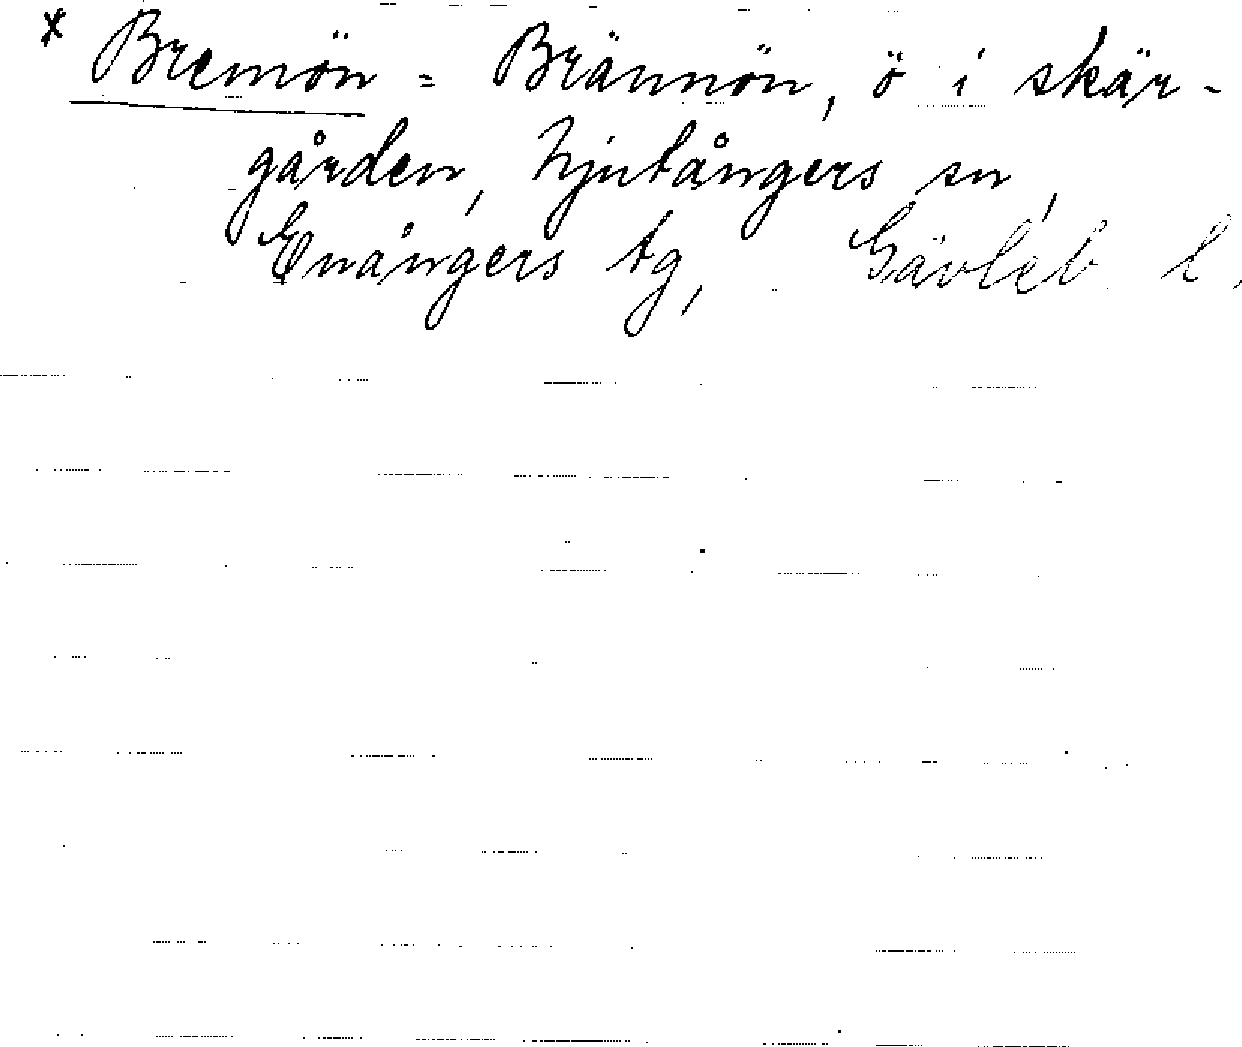 * Bremön = Brännön, ö i skär-
gården, Njutångers sn,
Enångers tg, Gävleb l.